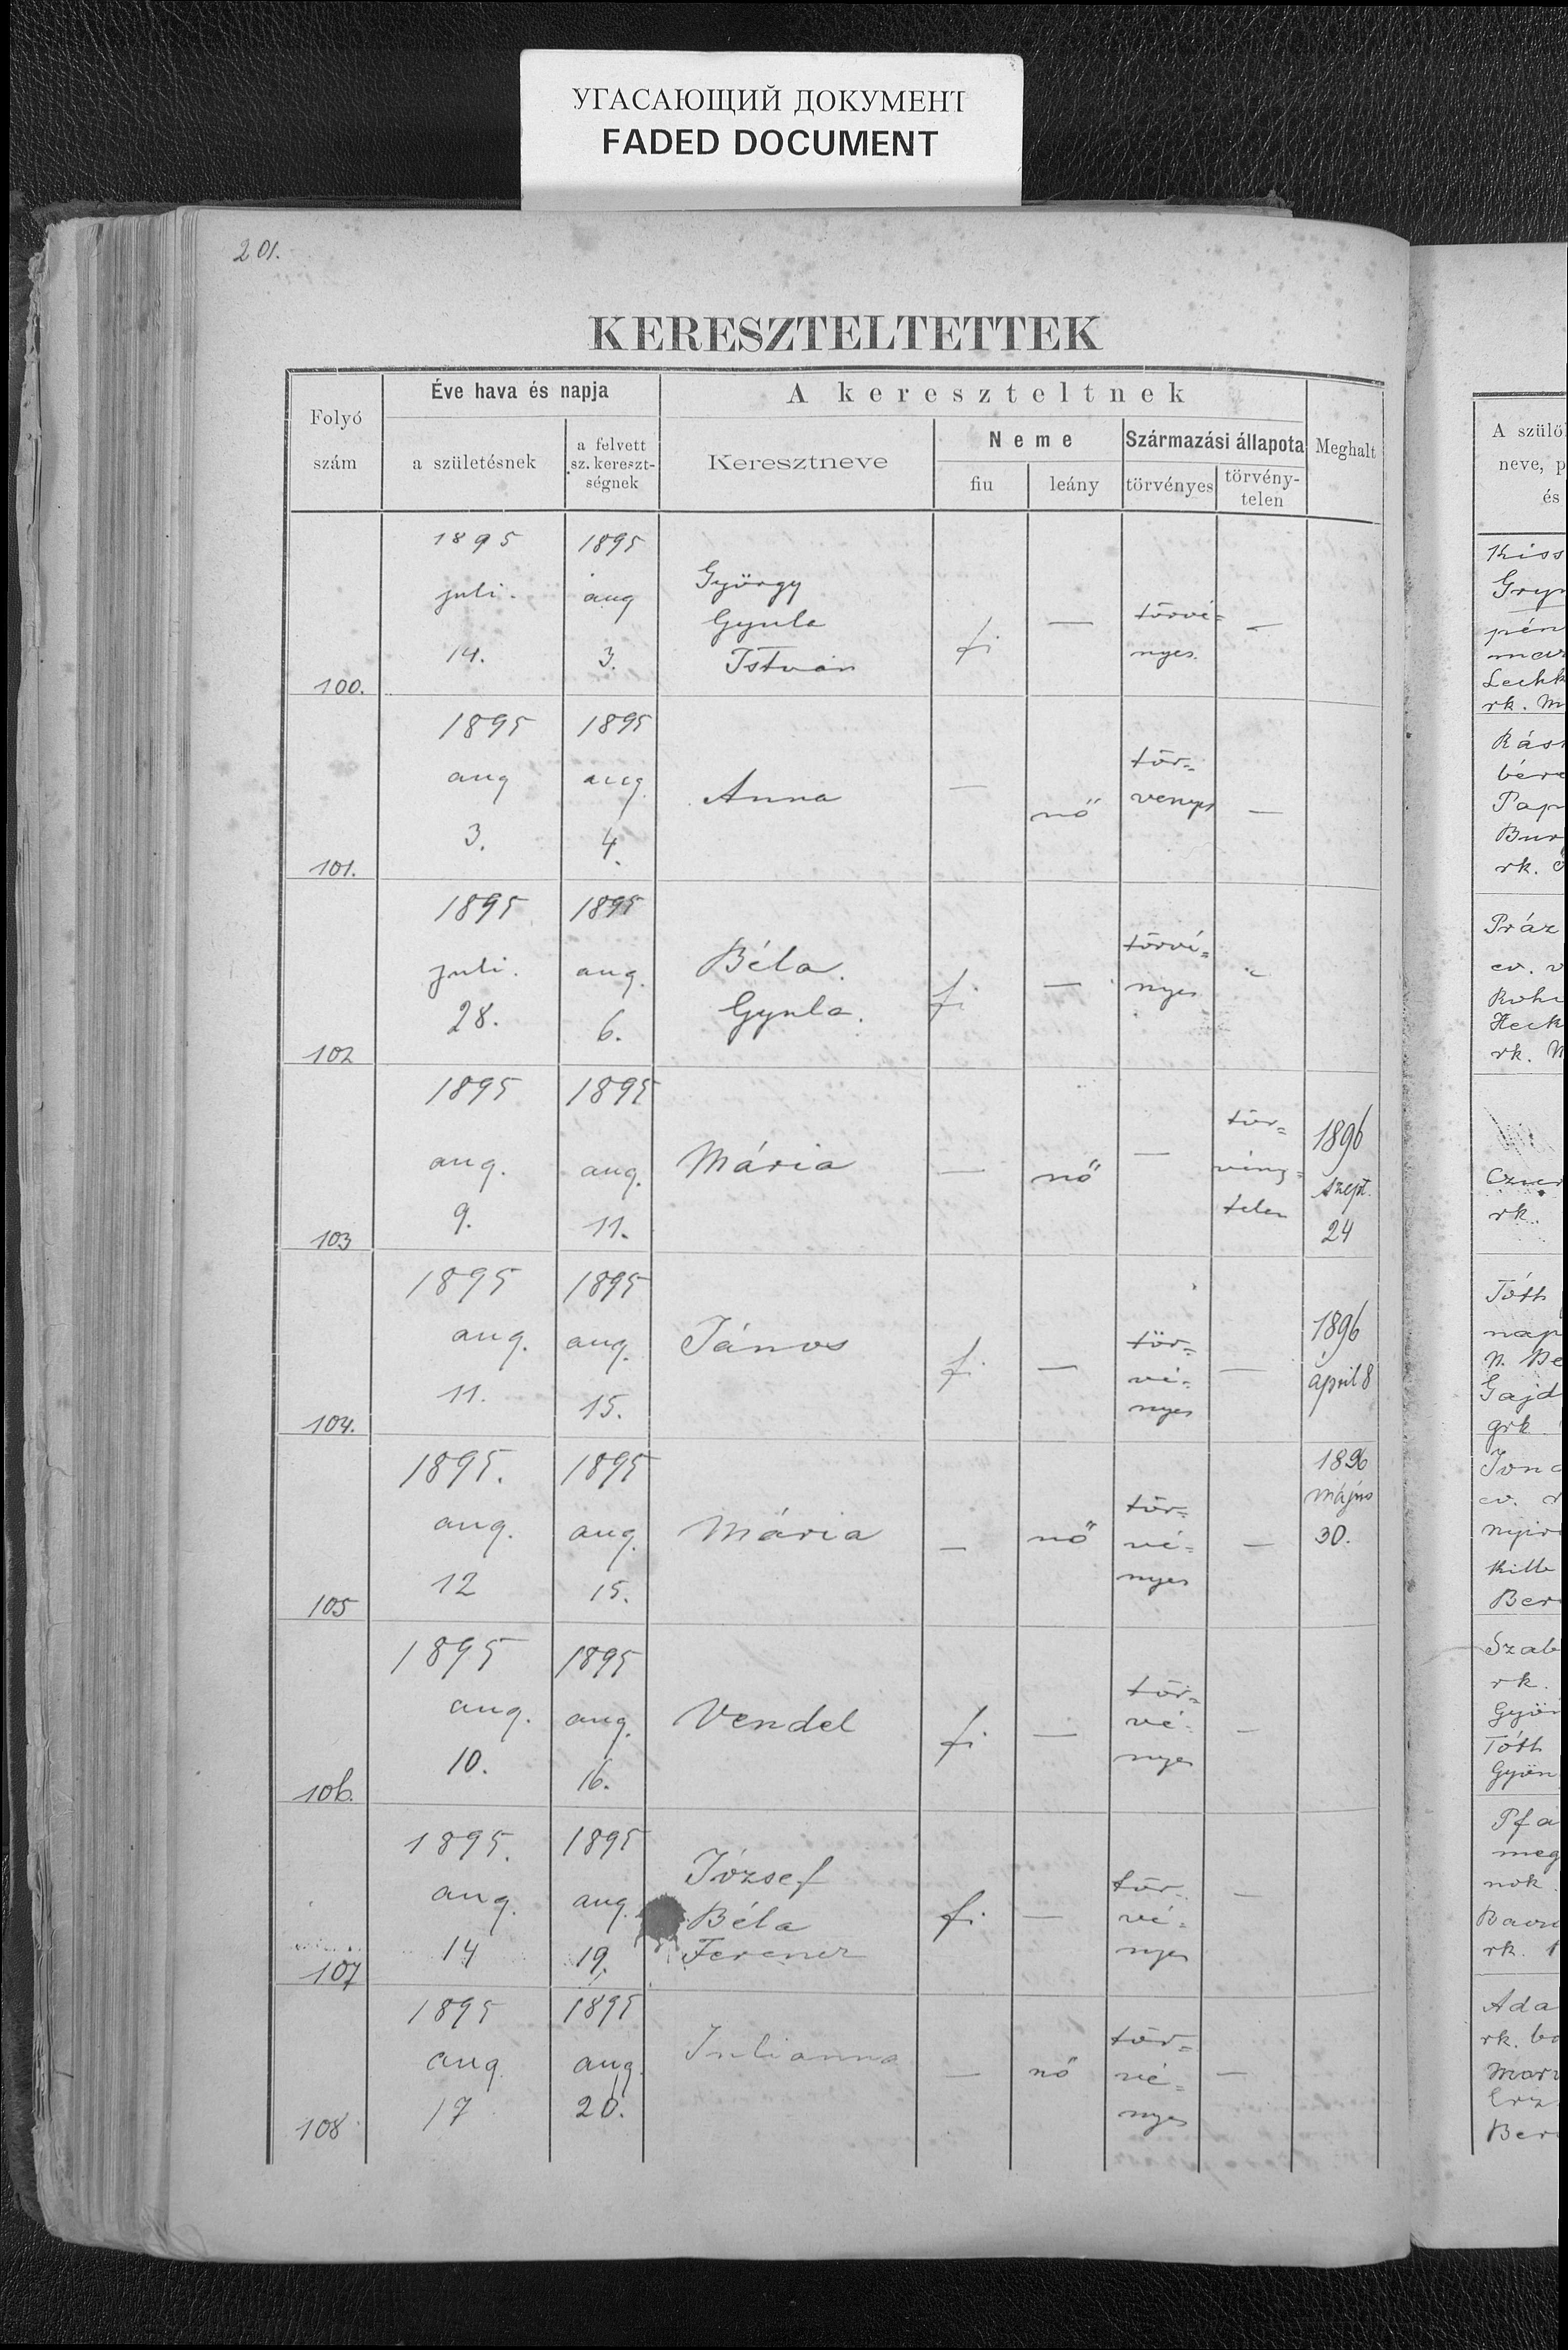 УГАСАЮЩИЙ ДОКУМЕНТ
FADED DOCUMENT
201.
KERESZTELTETTEK
Folyó szám
Éve hava és napja
a születésnek
a felvett sz. kereszt-ségnek
A kereszteltnek
Keresztneve
Neme
fiu
leány
Származási állapota
törvényes
törvény-telen
Meghalt
A szülő
neve, p
és
100.
1895 juli. 14.
1895 aug 3.
György
Gyula
István
fi
—
törvé=
nyes.
—
101.
1895 aug 3.
1895 aug. 4.
Anna
—
nő
tör=
venyes
—
102
1895 juli. 28.
1895 aug. 6.
Béla.
Gyula.
fi
—
törvé=
nyes
103
1895 aug. 9.
1895 aug. 11.
Mária
—
nő
—
tör=
vény=
telen
1896
szept.
24
104.
1895 aug. 11.
1895 aug. 15.
János
fi
—
tör=
vé=
nyes
—
1896
april 8
105
1895. aug. 12
1895 aug. 15.
Mária
—
nő
tör=
vé=
nyes
—
1896
május
30.
106.
1895 aug. 10.
1895 aug. 16.
Vendel
fi
—
tör=
vé=
nyes
—
107
1895. aug. 14
1895 aug. 19.
József
Béla
Ferencz
fi
—
tör=
vé=
nyes
—
108
1895 aug 17
1895 aug. 20.
Julianna
—
nő
tör=
vé=
nyes
—
Kiss
pén
Lechk
rk. M
bére
Pap
Bur
rk.
Práz
ev. v
Heck
rk.
rk.
Tóth
nap
N. Be
Gajd
grk
ev.
Ber
Szab
rk.
Gyön
Tóth
Gyön
Pfa
meg
nok
rk.
Ada
rk. bo
Mar
Erz
Ber